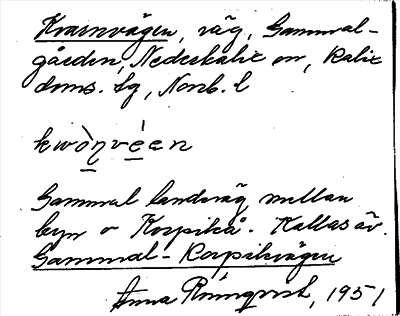 Kvarnvägen, väg, Gammal-
gården, Nederkalix sn, Kalix
doms. lg, Norrb. l
kwòn̠vé̠en
Gammal landsväg mellan
byn o Korpikå. Kallas äv.
Gammal-Korpikvägen
Anna Rönnqvist, 1951